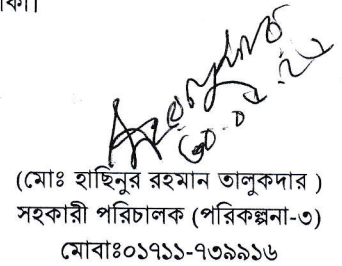 (মোঃ হাছিনুর রহমান তালুকদার )
সহকারী পরিচালক (পরিকল্পনা-৩)
মোবাঃ০১৭১১-৭৩৯৯১৬